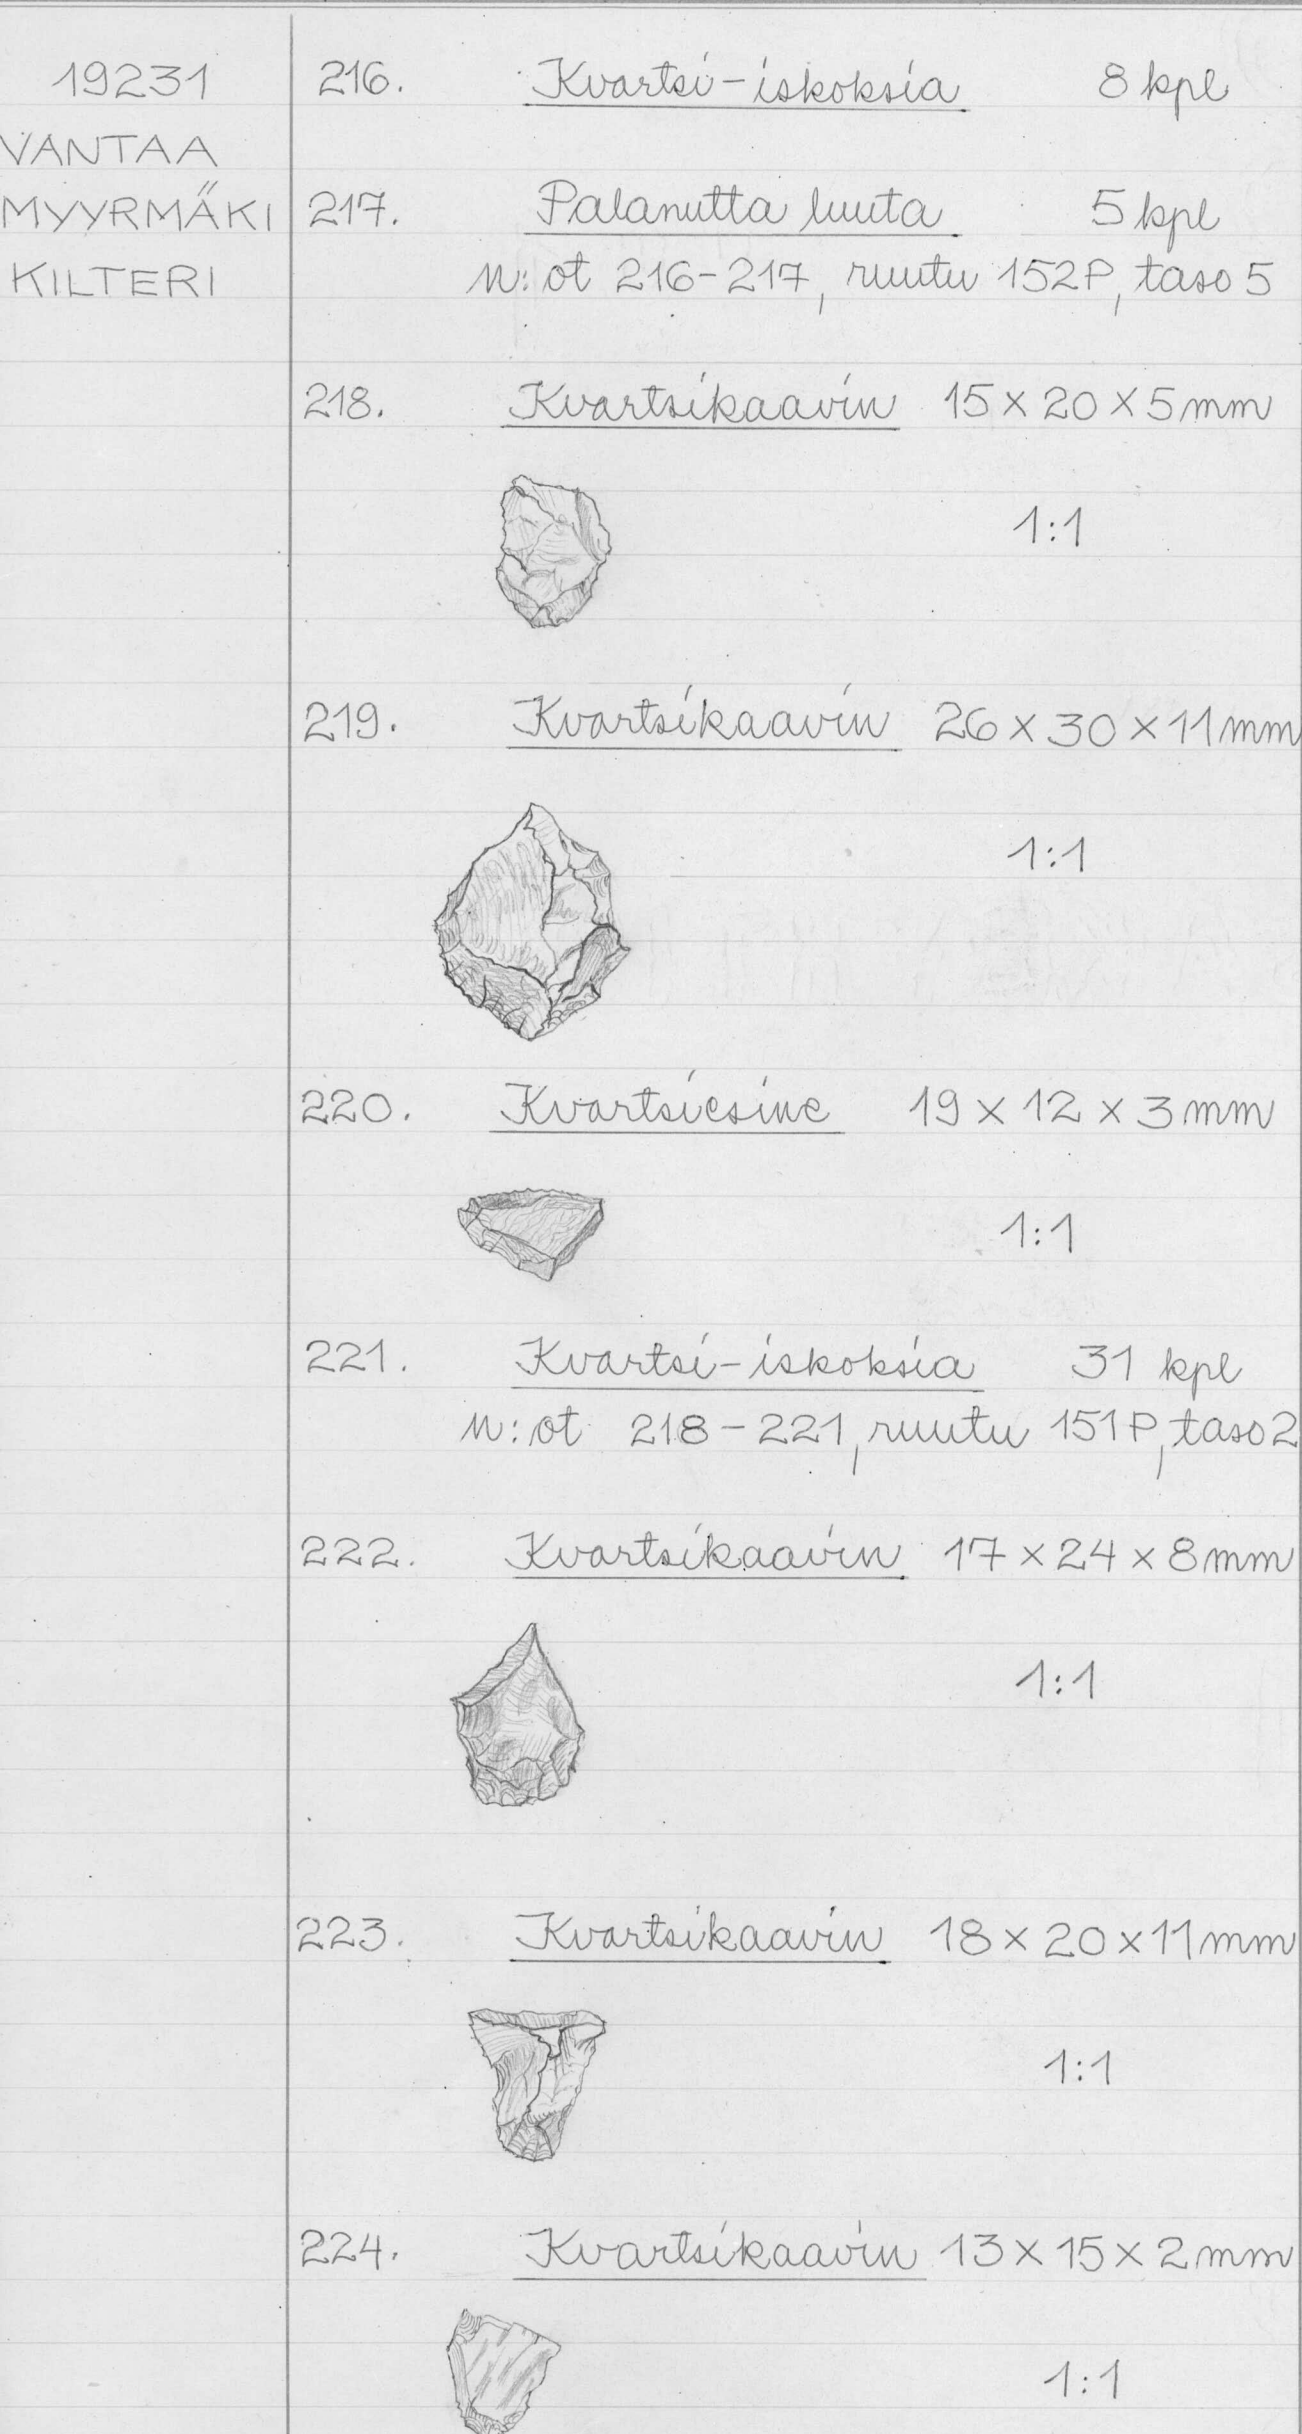 19231
VANTAA
MYYRMÄKI
KILTERI
216. Kvartsi-iskoksia 8 kpl
217. Palanutta luuta 5 kpl
n:ot 216-217, ruutu 152P, taso 5
218. Kvartsikaavin 15 x 20 x 5 mm
1:1
219. Kvartsikaavin 26 x 30 x 11 mm
1:1
220. Kvartsiesine 19 x 12 x 3 mm
1:1
221. Kvartsi-iskoksia 31 kpl
n:ot 218-221, ruutu 151P, taso 2
222. Kvartsikaavin 17 x 24 x 8 mm
1:1
223. Kvartsikaavin 18 x 20 x 11 mm
1:1
224. Kvartsikaavin 13 x 15 x 2 mm
1:1